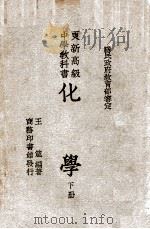 國民政府教育部審定
更新高級
中學教科書
化
學
下冊
王箴編著
商務印書館發行